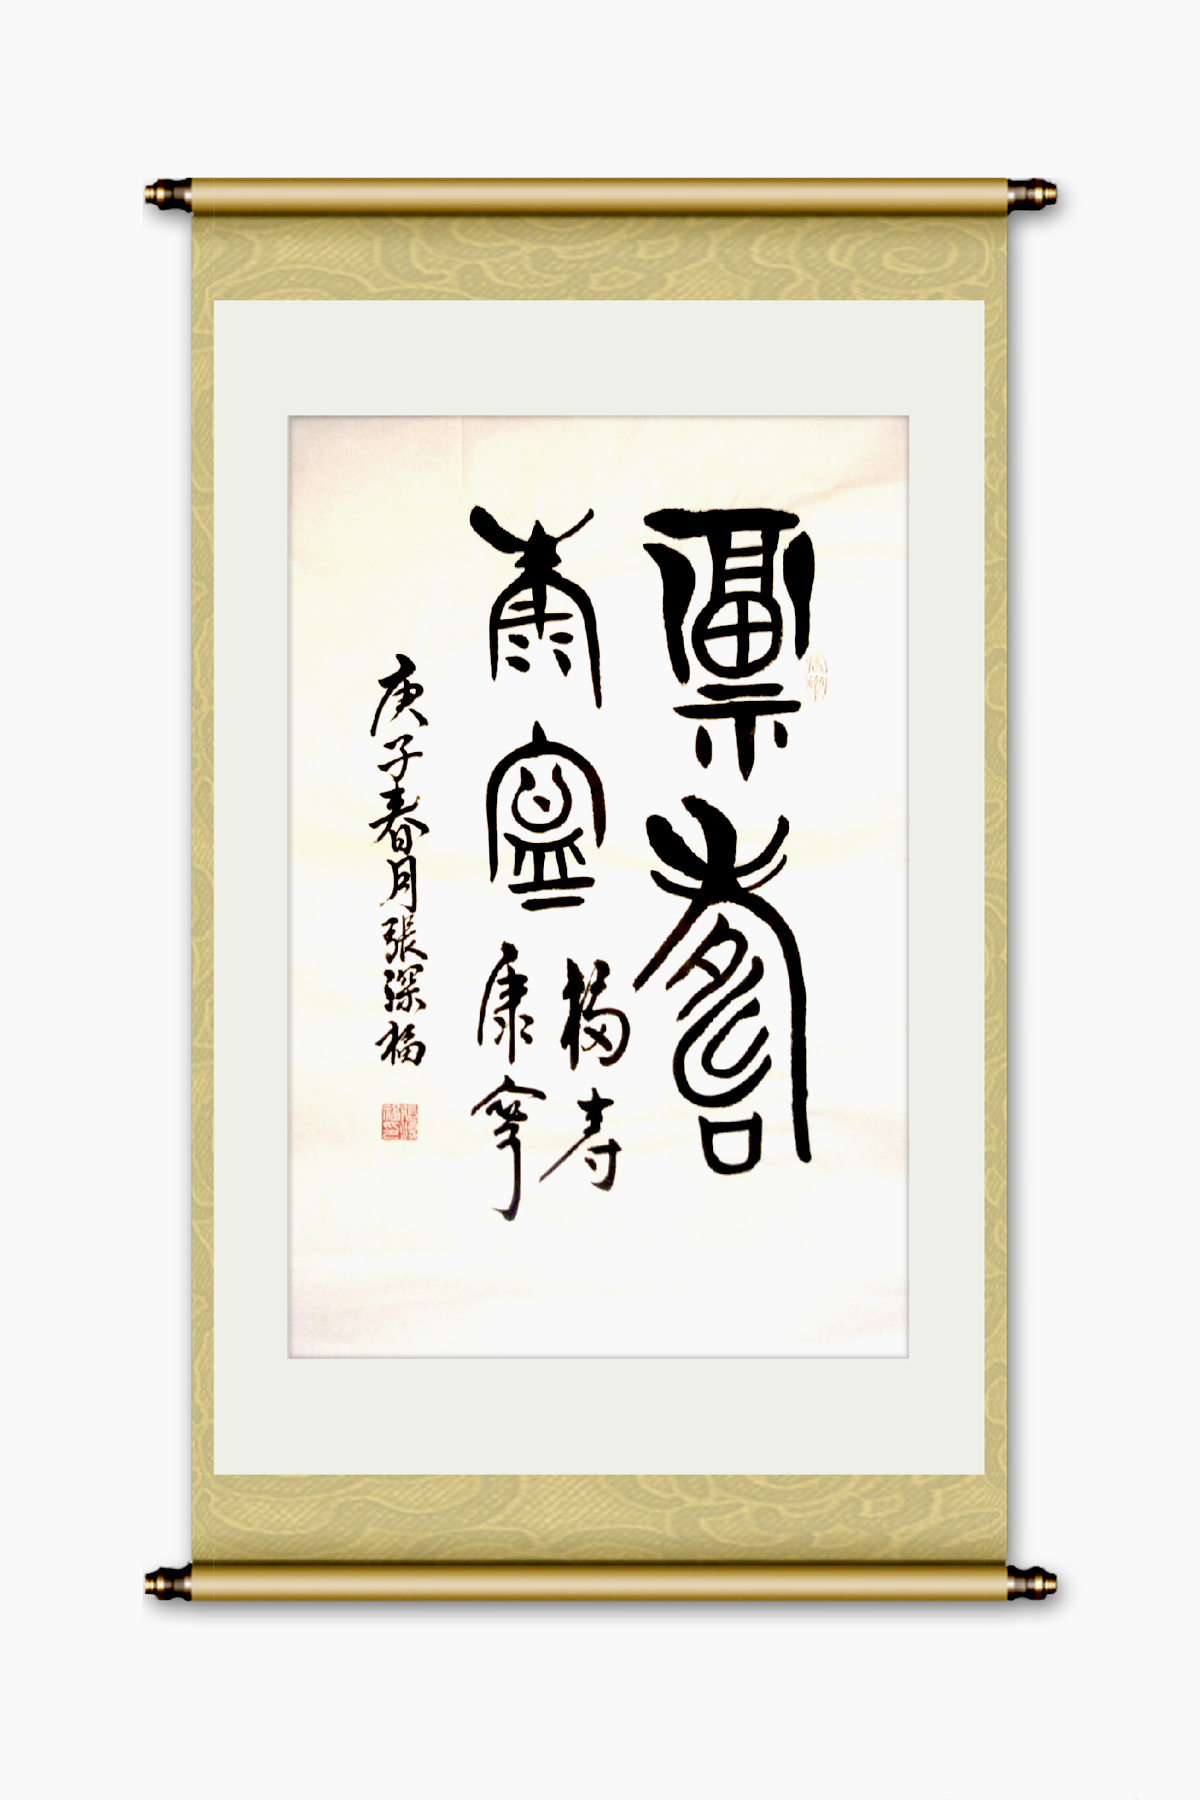 福壽
康寧
福寿
康寧
庚子春月張深福